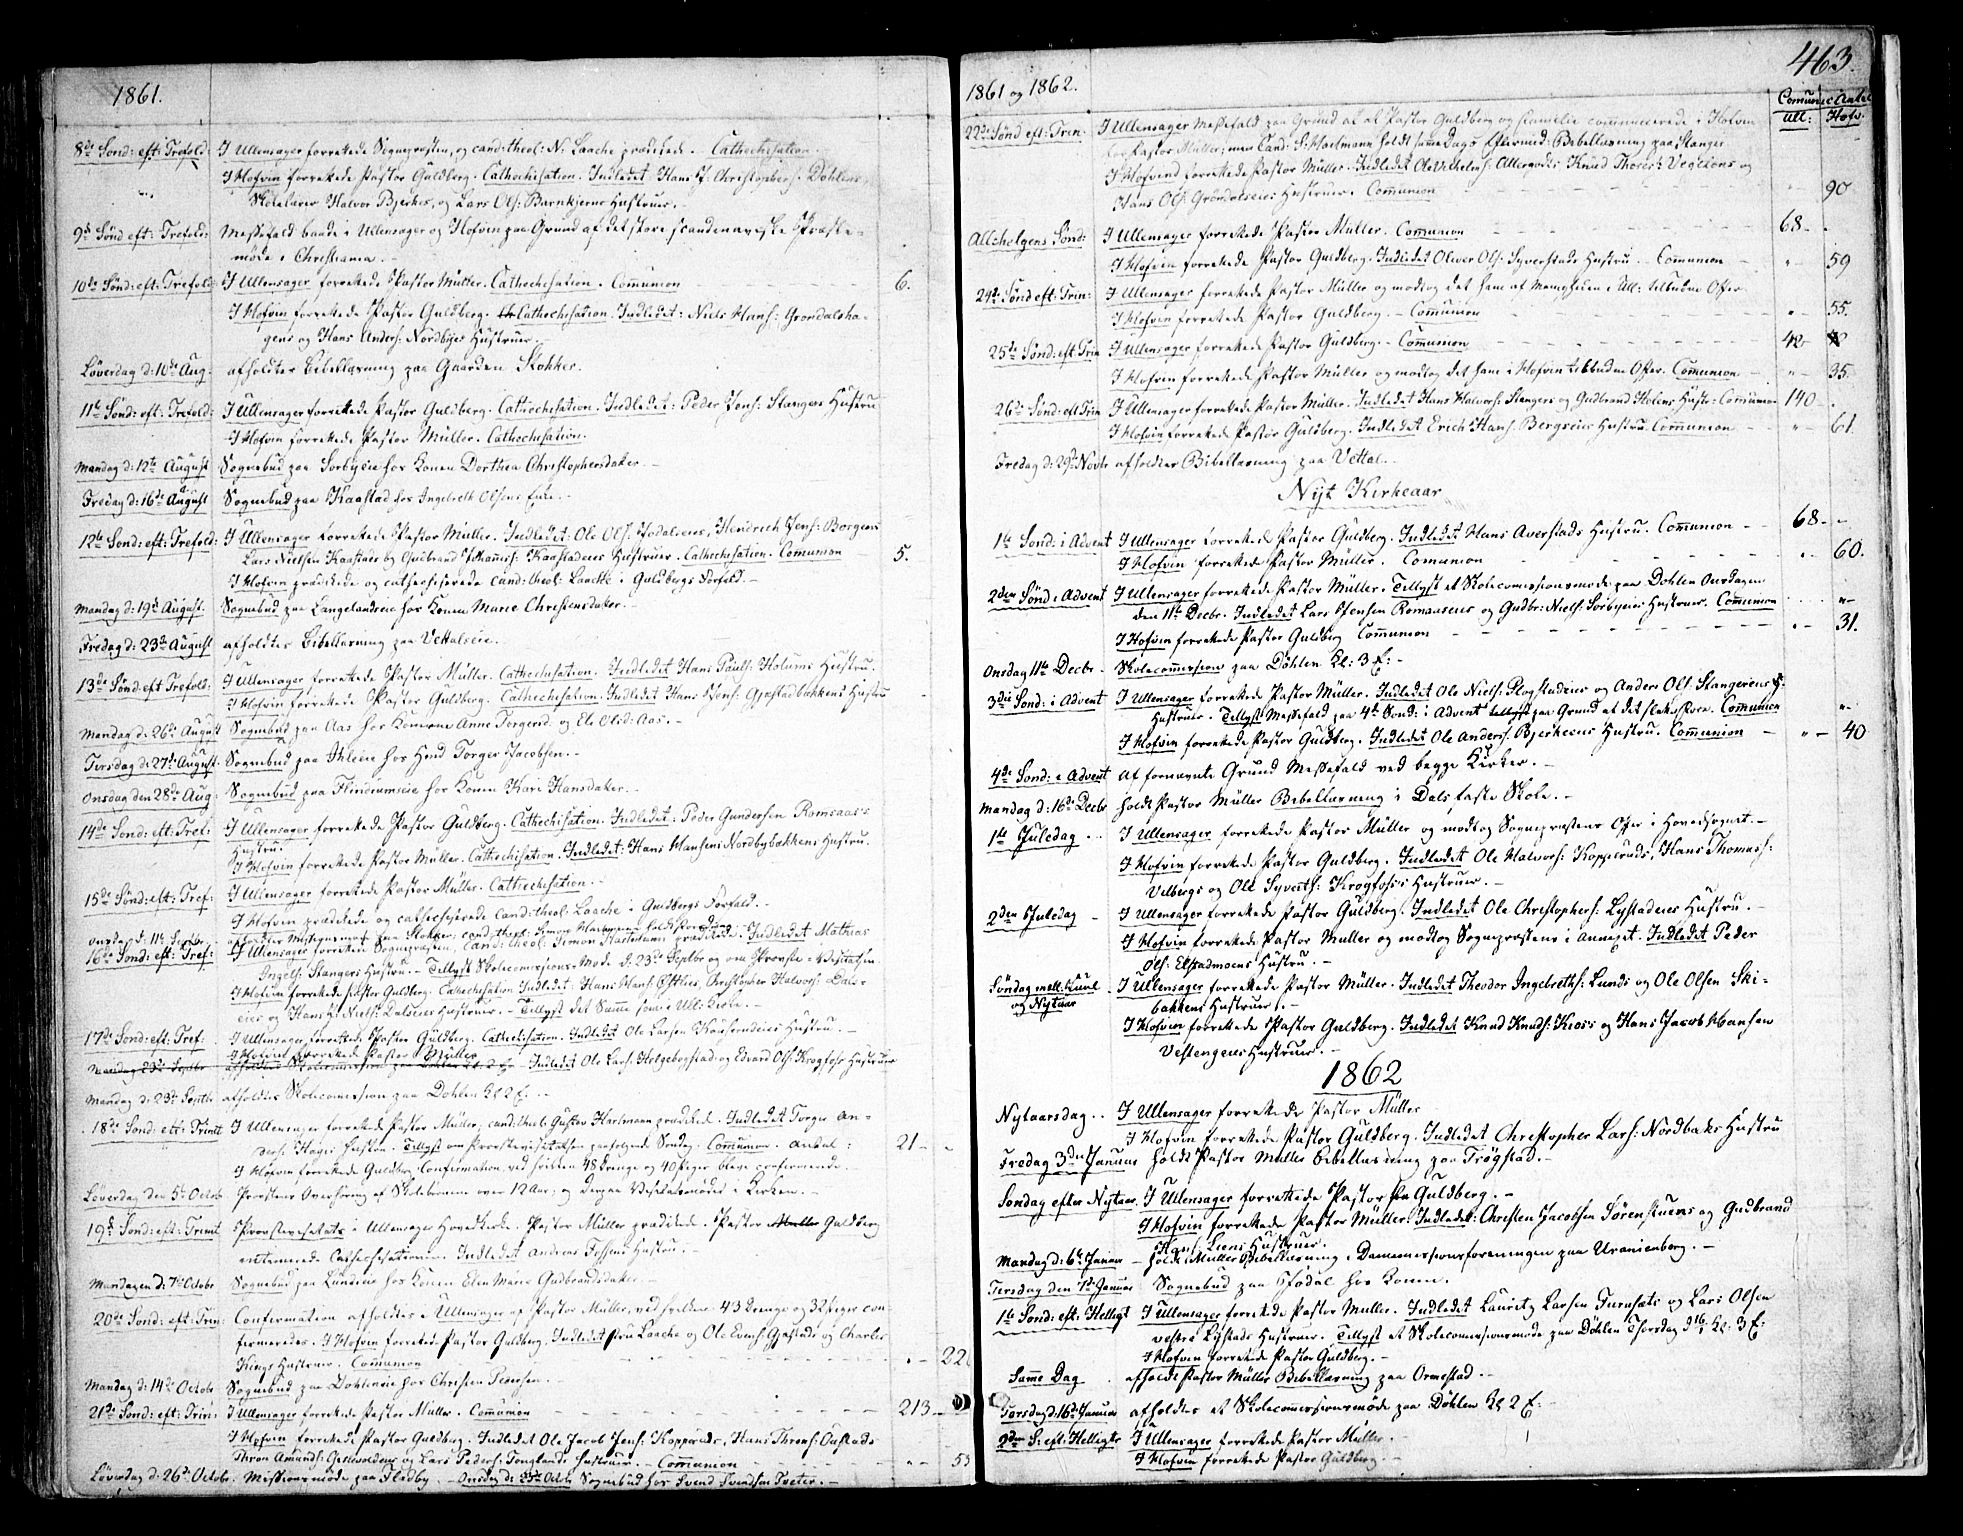 1861.
8de Sönd: eft: Trefold: I Ullensager forrettede Sognepresten, og cand: theol: N. Laache prædikede. Cathechisation.
I Hofvin forrettede Pastor Guldberg. Cathechisation. Indledet Hans J. Christophers: Döhlens,
Skolelærer Halvor Bjerkes, og Lars Ols: Hustruer.
9de Sönd eft: Trefold: Messefald baade i Ullensager og Hofvin paa Grund af det store scandenaviske Præste-
möde i Christiania.
10de Sönd: eft: Trefold: I Ullensager forrettede Pastor Müller. Cathechisation. Comunion 6.
I Hofvin forrettede Pastor Guldberg. Cathechisation. Indledet: Niels Hans: Grøndalsha-
gens og Hans Anders: Nordbyes Hustruer.
Löverdag d: 10de Aug. afholdtes Bibellæsning paa Gaarden Stokker.
11te Sönd: eft: Trefold: I Ullensager forrettede Pastor Guldberg. Cathechisation. Indledet: Peder Jens: Stangers Hustru
I Hofvin forrettede Pastor Müller. Cathechisation.
Mandag d: 12te August Sognebud paa Sørbyeie hos Konen Dorthea Christophersdaker.
Fredag d: 16de August Sognebud paa Kaastad hos Ingebreth Olsens Enke.
12te Sönd: eft: Trefold: I Ullensager forrettede Pastor Müller. Indledet: Ole Ols: Jodaleies, Hendrich Jens: Borgens
Lars Nielsen Kaastads og Gudbrand Johannis: Kaastadeies Hustruer. Cathechisation. Comunion 5.
I Hofvin prædikede og cathechiserede cand: theol: Laache i Guldbergs Forfald.
Mandag d: 19de August. Sognebud paa Langelandeie hos Konen Marie Christensdaker.
Fredag d: 23de August afholdtes Bibellæsning paa Vettaleie.
13de Sönd: eft Trefold: I Ullensager forrettede Pastor Müller. Cathechisation. Indledet Hans Pauls: Holums Hustru.
I Hofvin forrettede Pastor Guldberg. Cathechisation. Indledet Hans Jens: Gjæstadbakkens Hustru
Mandag d: 26de August Sognebud paa Aas hos Konerne Anne Torgersd: og Ele Olsd: Aas.
Tirsdag d: 27de August. Sognebud paa Ihleeie hos Hmd Torger Jacobsen.
Onsdag den 28de Aug: Sognebud paa hos Konen Kari Hansdaker.
14de Sönd: eft: Tref: I Ullensager forrettede Pastor Guldberg. Cathechisation. Indledet: Peder Gundersen Romsaas's
Hustru.
I Hofvin forrettede Pastor Müller. Cathechisation. Indledet: Hans Hansens Nordbybakkens Hustru.
15de Sönd: eft: Tref: I Ullensager forrettede Pastor Müller. Cathechisation.
I Hofvin prædikede og cathechiserede cand: theol: Laache i Guldbergs Forfald.
Onsdag d: 11te Septbr afholdtes paa Stokker, cand. theol: Simon
16de Sönd: eft: Tref: I Ullensager forrettede Sognepresten, Cand: theol: Simon Hartmann prædikede. Indledet Mathias
Ingels: Stangers Hustru. Tillyst Skolecomissions-Møde d. 23de Septbr og om Provste-Visitatsen
I Hofvin forrettede Pastor Guldberg. Cathechisation. Indledet: Hans Hans: Christopher Halvors: Dals-
eies og Hans Niels: Dalseies Hustruer. Tillyst det Samme som i Ull: Kirke.
17de Sönd: eft: Tref: I Ullensager forrettede Pastor Guldberg. Cathechisation. Indledet Ole Larsen Hustru.
I Hofvin forrettede Pastor Müller
Mandag 23de Septbr Indledet Ole Lars: Helgebogstad og Edvard Ols: Krogfoss Hustruer
Mandag d: 23de Septbr afholdtes Skolecomission paa Döhlen Kl 2 E.
18de Sönd: eft: Trinit I Ullensager forrettede Pastor Müller; cand: theol: Gustav Hartmann prædiked. Indledet Torger An-
ders: Hages Hustru. Tillyst om Provstevisitatsen paafølgende Söndag. Comunion. Antal: 21
I Hofvin forrettede Guldberg Confirmation, ved hvilken 48 Drenge og 40 Piger bleve confirmerede.
Löverdag den 5te Octob Provstens Overhöring af Skolebörnene over 12 Aar; og derpaa Visitatsmödet i Kirken.
19de Sönd: eft: Trinit Provstevisitats i Ullensager Hovedkirke. Pastor Müller prædikede. Pastor Müller Guldberg
Cathechisationen. Indledet Andreas Hustru.
Mandagen d: 7de Octobr Sognebud paa Lundeie hos Konen Elen Marie Gudbrandsdaker.
20de Sönd: eft: Trin: Confirmation afholdtes i Ullensager af Pastor Müller, ved hvilken 43 Drenge og 32 Piger con-
firmeredes. I Hofvin forrettede Pastor Guldberg. Indledet Fru Laache og Ole Evens: Gjæstads og Charles
Kings Hustruer. Comunion
Mandag d: 14de Octobr Sognebud paa Döhleneie hos Christen Pedersen.
21de Sönd: eft: Trin: I Ullensager forrettede Pastor Müller. Comunion 213
I Hofvin forrettede Pastor Guldberg. Indledet Ole Jacob Jens: Kopperuds, Hans Throns: Onstads
Thron Amunds: og Lars Peders: Hustruer. Comunion 53
Löverdag d: 26de Octobr. Missionsmöde paa Fladby. Onsdag d: 23de Octbr Sognebud hos Svend Svendsen Tveter.
463.
1861 og 1862.
Comunicantal
Ull: Hofv:
22de Sönd eft: Trin: I Ullensager Messefald paa Grund af at Pastor Guldberg og Familie comunicerede i Hofvin
for Pastor Müller; men Cand: S. Hartmann holdt samme Dags Eftermid: Bibellæsning paa Stanger
I Hofvind forrettede Pastor Müller. Indledet Ole Vilhelms: Allergods Knud Thores: Vegstens og
Hans Ols: Gröndalseies Hustruer. Comunion 90
Allehelgens Sönd: I Ullensager forrettede Pastor Müller. Comunion 68
I Hofvin forrettede Pastor Guldberg. Indledet Oliver Ols: Syverstads Hustru. Comunion 59
24de Sönd eft: Trin: I Ullensager forrettede Pastor Müller og modtog det ham af Menigheden i Ull: tilbudne Offer.
I Hofvin forrettede Pastor Guldberg. Comunion 55.
25de Sönd: eft: Trin I Ullensager forrettede Pastor Guldberg. Comunion 42
I Hofvin forrettede Pastor Müller og modtog det ham i Hofvin tilbudne Offer. Comunion 35.
26de Sönd: eft Trin I Ullensager forrettede Pastor Müller. Indledet Hans Halvors: Stangers og Gudbrand Holens Hustr: Comunion 140
I Hofvin forrettede Pastor Guldberg. Indledet Erich Hans: Bergseies Hustru. Comunion 61.
Fredag d: 29de Novbr afholdtes Bibellæsning paa Vettal.
Nyt Kirkeaar
1ste Sönd: i Advent I Ullensager forrettede Pastor Guldberg. Indledet Hans Averstads Hustru. Comunion 68
I Hofvin forrettede Pastor Müller. Comunion 60.
2den Sönd i Advent I Ullensager forrettede Pastor Müller. Tillyst et Skolecomissionsmöde paa Döhlen Onsdagen
den 11te Decbr. Indledet Lars Jensen Romsaseies og Gudbr: Niels: Sörbyeies Hustruer. Comunion
I Hofvin forrettede Pastor Guldberg Comunion 31.
Onsdag 11te Decbr Skolecomission paa Döhlen Kl: 3 E:
3die Sönd: i Advent I Ullensager forrettede Pastor Müller. Indledet Ole Niels: Plogstadeies og Anders Ols: Stangerens
Hustruer. Tillyst Messefald paa 4de Sönd: i Advent paa Grund af det slette Före. Comunion
I Hofvin forrettede Pastor Guldberg. Indledet Ole Anders: Bjerkeeies Hustru. Comunion 40
4de Sönd: i Advent Af fornævnte Grund Messefald ved begge Kirker.
Mandag d: 16de Decbr holdt Pastor Müller Bibellæsning i Dals faste Skole.
1ste Juledag I Ullensager forrettede Pastor Müller og modtog Sognepræstens Offer i Hovedsognet.
I Hofvin forrettede Pastor Guldberg. Indledet Ole Halvors: Kopperuds, Hans Thomas:
Velbergs og Ole Syverts: Krogfoss's Hustruer.
2den Juledag I Ullensager forrettede Pastor Guldberg. Indledet Ole Christophers: Lystadeies Hustru.
I Hofvin forrettede Pastor Müller og modtog Sognepræstens i Annexet. Indledet Peder
Ols: Elstadmoens Hustru.
Söndag mell: Juul I Ullensager forrettede Pastor Müller. Indledet Theodor Ingebreths: Lunds og Ole Olsen Ski-
og Nytaar bakkens Hustruer.
I Hofvin forrettede Pastor Guldberg. Indledet Knud Knuds: Kross og Hans Jacob Hansen
Vestengens Hustruer.
1862
Nytaarsdag I Ullensager forrettede Pastor Müller
I Hofvin forrettede Pastor Guldberg. Indledet Christopher Lars: Nordbaks Hustru
Fredag 3den Januar holdt Pastor Müller Bibellæsning paa Trögstad.
Söndag efter Nytaar. I Ullensager forrettede Pastor Guldberg.
I Hofvin forrettede Pastor Müller. Indledet: Christen Jacobsen Sörenstuens og Gudbrand
Liens Hustruer.
Mandag d: 6te Januar holdt Müller Bibellæsning i Damemissionsforeningen paa Uranienborg.
Tirsdag den 7de Januar Sognebud paa Jodal hos Konen.
1ste Sönd: eft: Helligt I Ullensager forrettede Pastor Müller. Indledet Lauritz Larsen Furusæts og Lars Olsen
vestre Lystads Hustruer. Tillyst et Skolecomissionsmöde paa Döhlen Thorsdag d 16, Kl: 3 E:
I Hofvin forrettede Pastor Guldberg.
Samme Dag afholdt Pastor Müller Bibellæsning paa Ormestad.
Torsdag d: 16de Januar afholdtes et Skolecomissionsmöde paa Döhlen Kl 2 E:
2den S: eft: Helligtr I Ullensager forrettede Pastor Müller.
I Hofvin forrettede Pastor Guldberg.